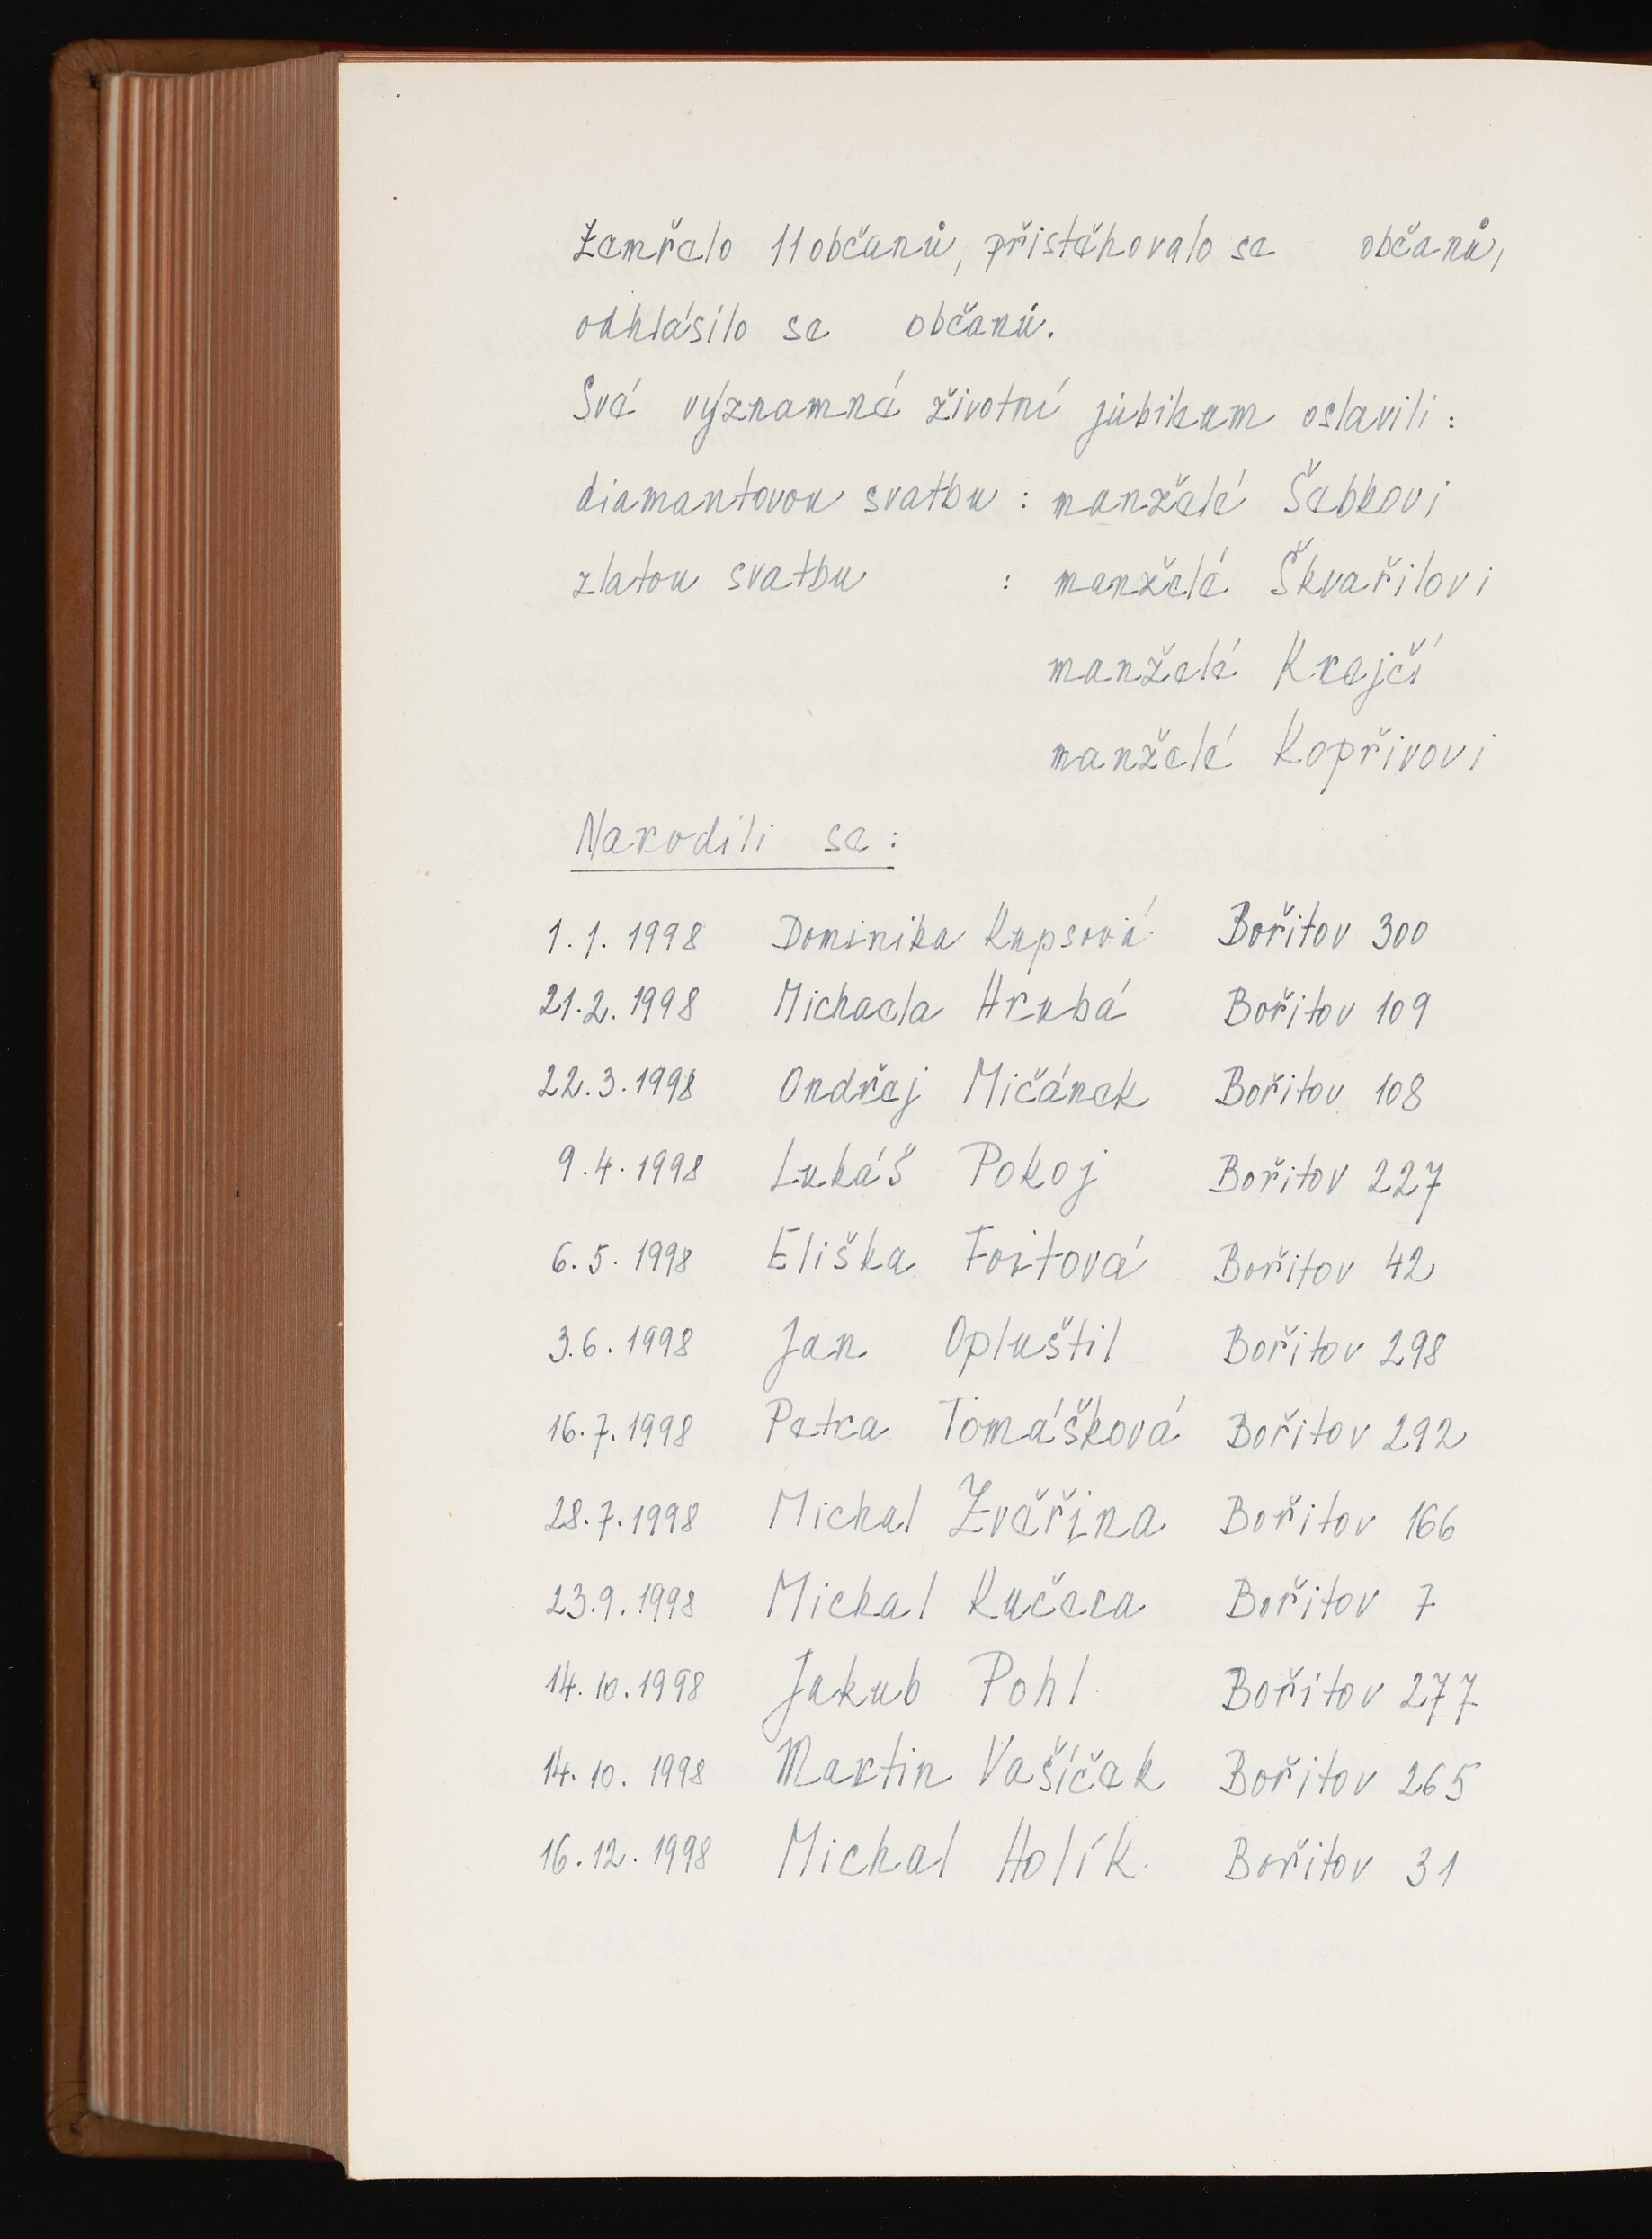 Zemřelo 11 občanů, přistěhovalo se občanů,
odhlásilo se občanů.
Své významné životní jubileum oslavili :
diamantovou svatbu : manželé Šebkovi
zlatou svatbu : manželé Škvařilovi
manželé Krejčí
manželé Kopřivovi
Narodili se :
1. 1. 1998 Dominika Kupsová Bořitov 300
21. 2. 1998 Michaela Hrubá Bořitov 109
22. 3. 1998 Ondřej Mičánek Bořitov 108
9. 4. 1998 Lukáš Pokoj Bořitov 227
6. 5. 1998 Eliška Foitová Bořitov 42
3. 6. 1998 Jan Opluštil Bořitov 298
16. 7. 1998 Petra Tomášková Bořitov 292
28. 7. 1998 Michal Zvěřina Bořitov 166
23. 9. 1998 Michal Kučera Bořitov 7
14. 10. 1998 Jakub Pohl Bořitov 277
14. 10. 1998 Martin Vašíček Bořitov 265
16. 12. 1998 Michal Holík Bořitov 31